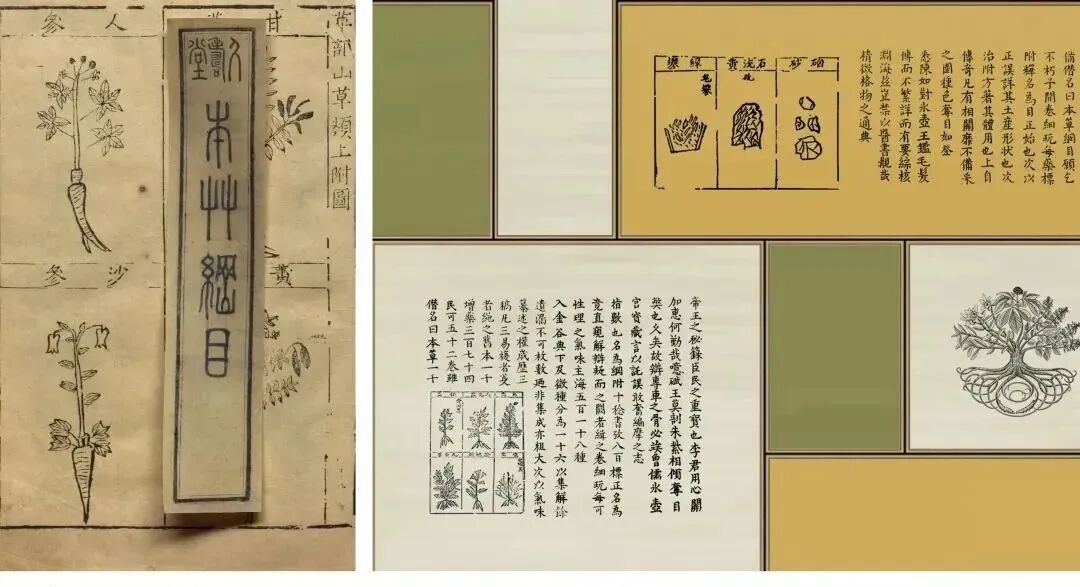 人參
甘
草部山草類上附圖
沙參
黃
久壽堂
本艸綱目
僭名曰本草綱目願乞
不朽予開卷細玩每藥標
附釋名為目正始也次以
正誤詳其土産形狀也次
治附方著其體用也上自
傳奇凡有相關靡不備采
之園種色奪目如登
悉陳如對氷壺玉鑑毛髮
博而不繁詳而有要綜核
淵海茲豈禁以醫書覯哉
精微格物之通典
硇砂
石流黃
綠礬
帝王之秘籙臣民之重寶也李君用心關
加惠何勤哉噫碔玉莫剖朱紫相傾奪目
獘也久矣故辯專車之骨必俟魯儒氷壺
宮寶藏言以託誤敢奮編摩之志
指數也名為綱附十稔書攷八百標正名為
竟直窺解辯疑而之闕者緝之卷細玩每可
性理之氣味主海五百一十八種
入金谷典下及微種分為一十六以集解餘
遺滴不可枚數廼非集成亦粗大次以氣味
纂述之權歲歷三
稿凡三易複者芟
者繩之舊本一十
增藥三百七十四
民可五十二卷雖
僭名曰本草一十